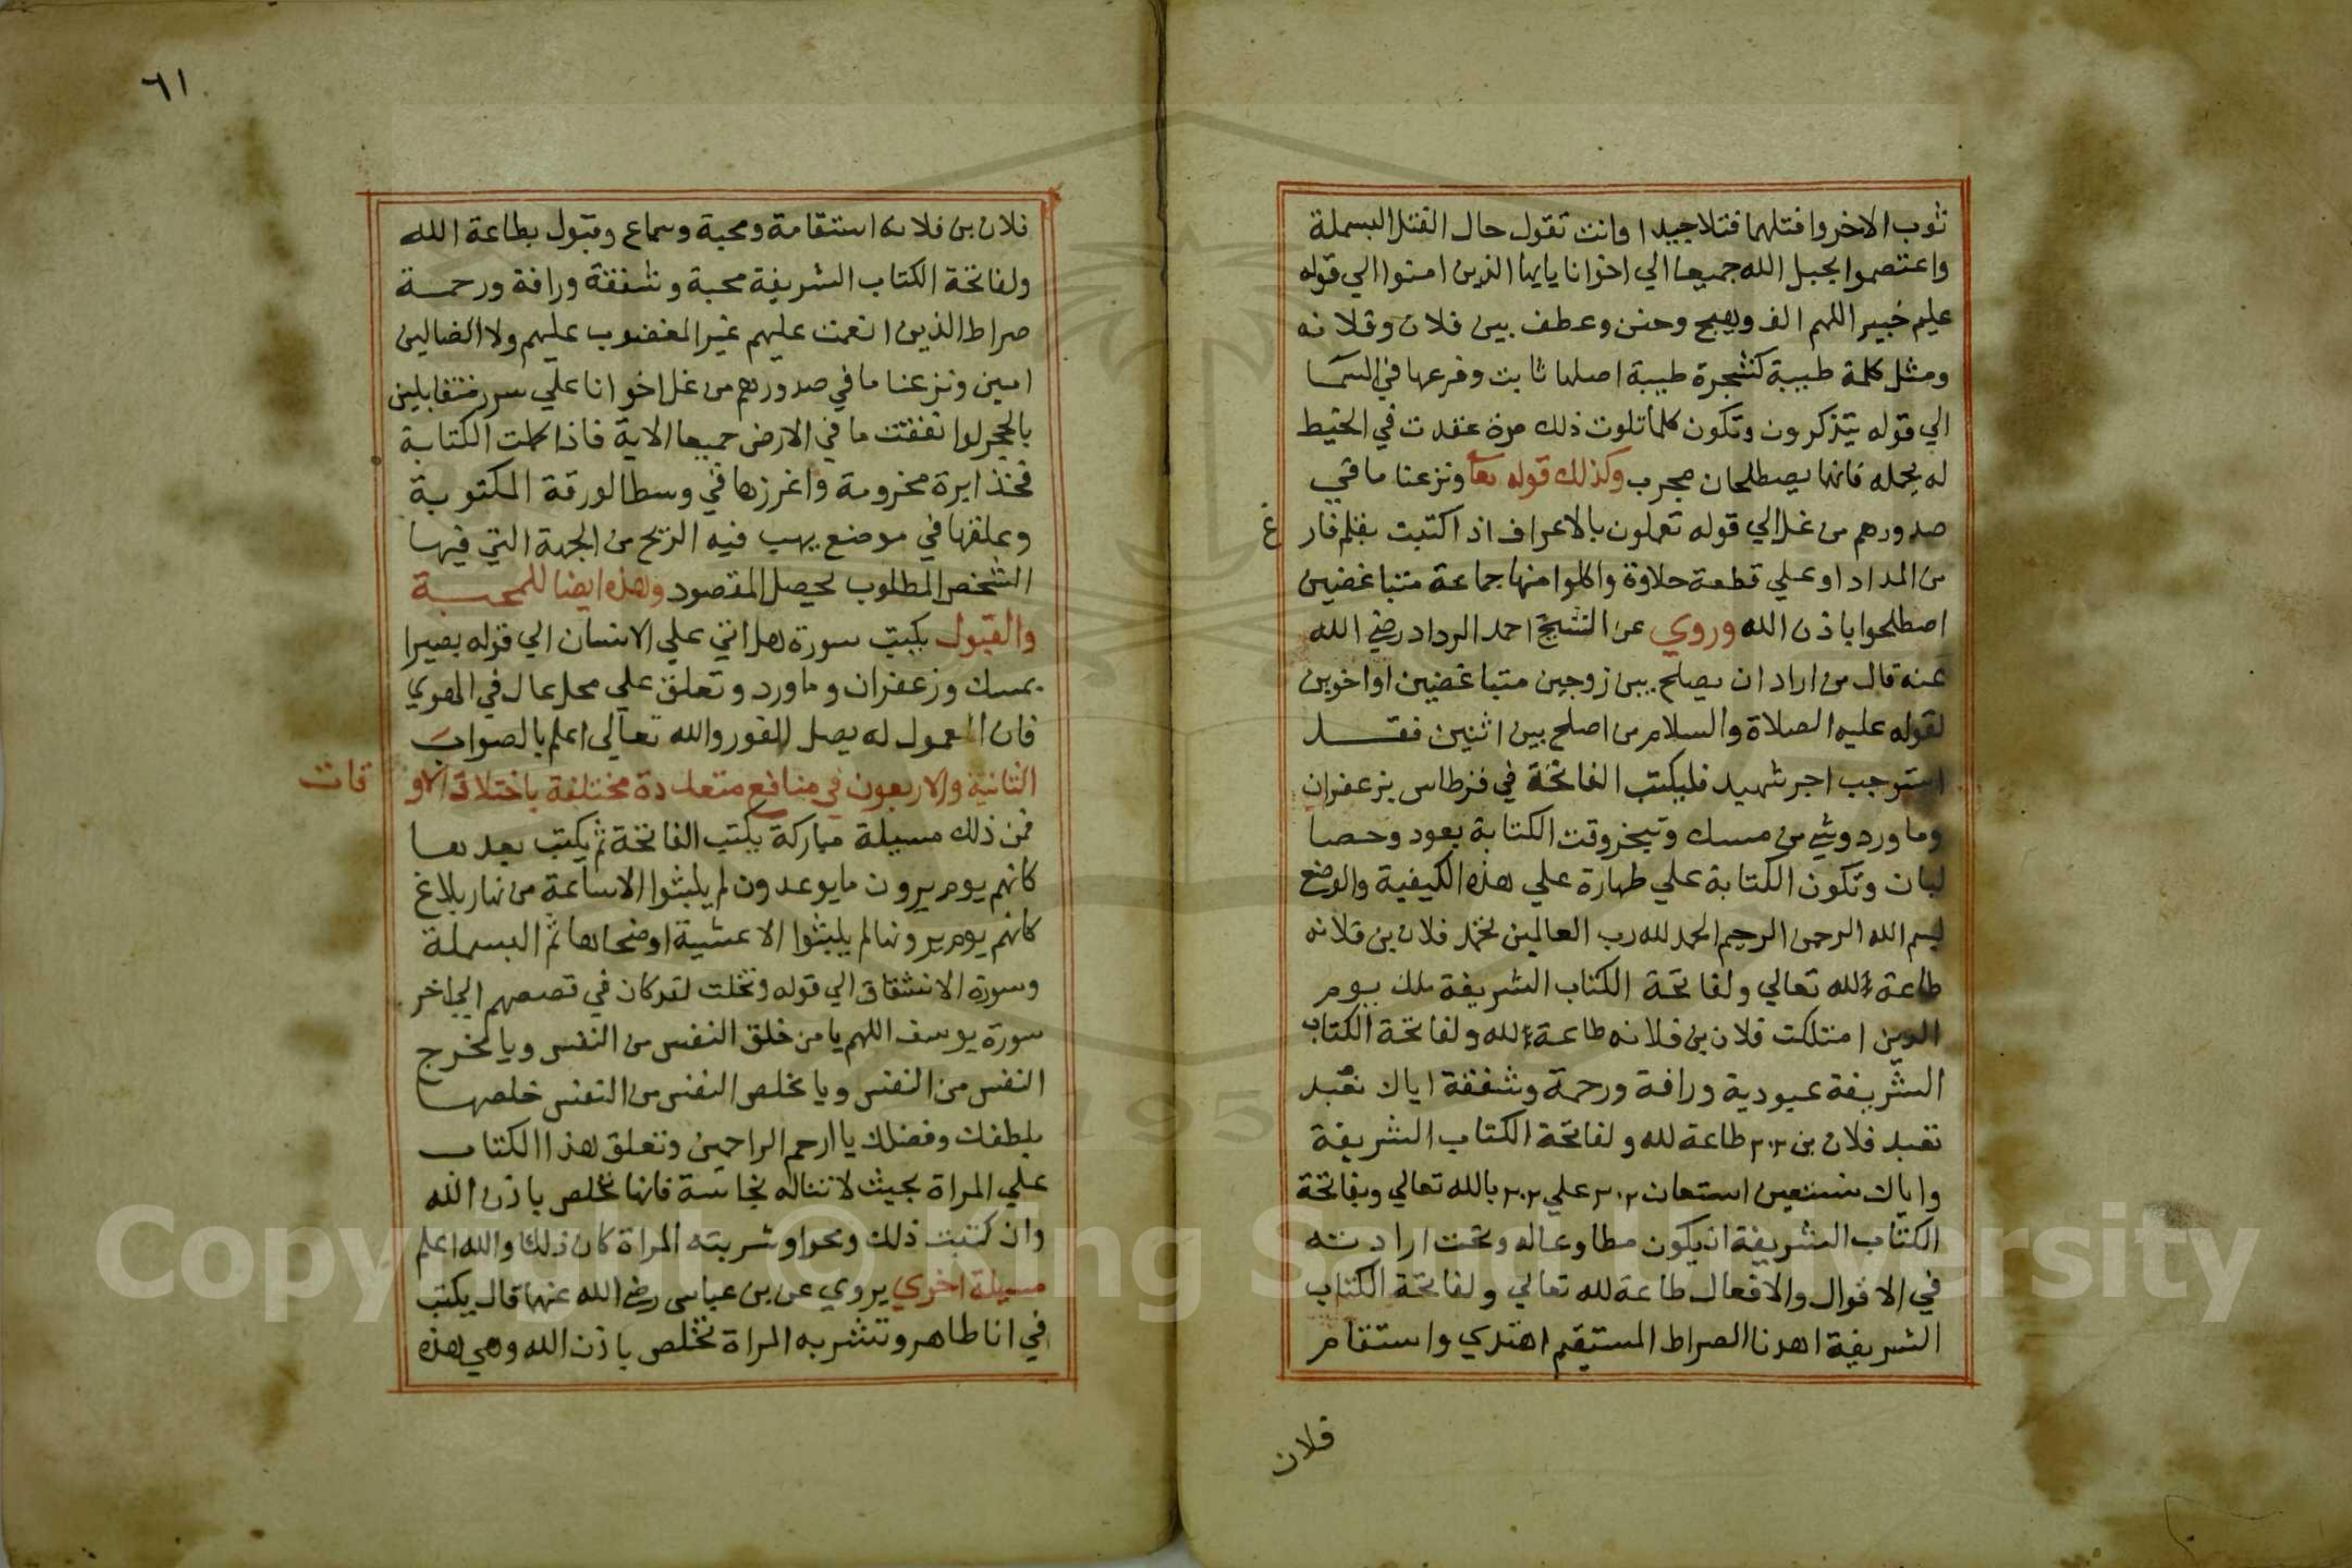 ثوب الاخر وافتلهما فتلا جيدا وانت تقول حال الفتل البسملة
واعتصموا بحبل الله جميعا الي اخوانا يايها الذين امنوا الي قوله
عليم خبير اللهم الف وهيج وحنن وعطف بين فلان وفلانه
ومثل كلمة طيبة كشجرة طيبة اصلها ثابت وفرعها في السما
الي قوله يتذكرون وتكون كلما تلوت ذلك مرة عقدت في الخيط
له يحمله فانهما يصطلحان مجرب وكذلك قوله تعا ونزعنا ما في
صدورهم من غل الي قوله تعملون بالاعراف اذا كتبت بقلم فار
غ
من المداد او علي قطعة حلاوة واكلوا منها جماعة متباغضين
اصطلحوا باذن الله وروي عن الشيخ احمد الرداد رضي الله
عنه قال من اراد ان يصلح بين زوجين متباغضين او اخوين
لقوله عليه الصلاة والسلام من اصلح بين اثنين فقد
استوجب اجر شهيد فليكتب الفاتحة في قرطاس بزعفران
وما ورد وشي من مسك وتبخر وقت الكتابة بعود وحصا
لبان وتكون الكتابة علي طهارة علي هذه الكيفية والوضع
بسم الله الرحمن الرحيم الحمد لله رب العالمين تحمد فلان بن فلانه
طاعة لله تعالي ولفاتحة الكتاب الشريفة ملك يوم
الدين امتلكت فلان بن فلانه طاعة لله ولفاتحة الكتاب
الشريفة عبودية ورافة ورحمة وشفقة اياك نعبد
تعبد فلان بن ٢٠٢ طاعة لله ولفاتحة الكتاب الشريفة
واياك نستعين استعان ٢٠٢ علي ٢٠٢ بالله تعالي وبفاتحة
الكتاب الشريفة ان يكون مطاوعا له وتحت ارادته
في الاقوال والافعال طاعة لله تعالي ولفاتحة الكتاب
الشريفة اهدنا الصراط المستقيم اهتدي واستقام
فلان
٦١
فلان بن فلانه استقامة ومحبة وسماع وقبول بطاعة الله
ولفاتحة الكتاب الشريفة محبة وشفقة ورافة ورحمة
صراط الذين انعمت عليهم غير المغضوب عليهم ولا الضالين
امين ونزعنا ما في صدورهم من غل اخوانا علي سرر متقابلين
بالحجر لو انفقت ما في الارض جميعا الاية فاذا كملت الكتابة
فخذ ابرة مخرومة واغرزها في وسط الورقة المكتوبة
وعلقها في موضع يهب فيه الريح من الجهة التي فيها
الشخص المطلوب يحصل المقصود وهذه ايضا للمحبة
والقبول يكتب سورة هل اتي علي الانسان الي قوله بصيرا
بمسك وزعفران وماورد وتعلق علي محل عال في الهوي
فان المعمول له يصل للفور والله تعالي اعلم بالصواب
الثانية والاربعون في منافع متعددة مختلفة باختلاف الاو
قات
فمن ذلك مسيلة مباركة يكتب الفاتحة ثم يكتب بعدها
كانهم يوم يرون ما يوعدون لم يلبثوا الا ساعة من نهار بلاغ
كانهم يوم يرونها لم يلبثوا الا عشية او ضحاها ثم البسملة
وسورة الانشقاق الي قوله وتخلت لقد كان في قصصهم الي اخر
سورة يوسف اللهم يا من خلق النفس من النفس ويا مخرج
النفس من النفس ويا مخلص النفس من النفس خلصها
بلطفك وفضلك يا ارحم الراحمين وتعلق هذا الكتاب
علي المراة بحيث لا تناله نجاسة فانها تخلص باذن الله
وان كتبت ذلك ومحوا وشربته المراة كان ذلك والله اعلم
مسيلة اخري يروي عن بن عباس رضي الله عنهما قال يكتب
في انا طاهر وتشربه المراة تخلص باذن الله وهي هذه
Copyright © King Saud University